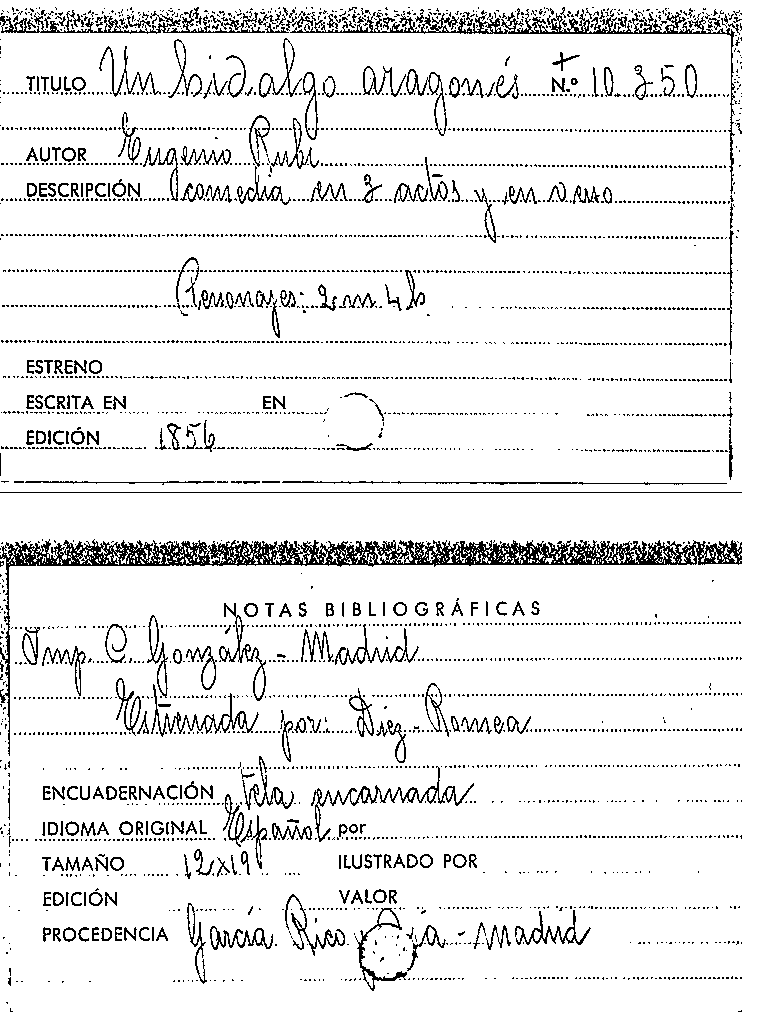 TITULO Un hidalgo aragonés N.º 10.350
AUTOR Eugenio Rubi
DESCRIPCIÓN Comedia en 3 actos y en verso
Personajes: 2 m 4 h.
ESTRENO
ESCRITA EN EN
EDICIÓN 1856
NOTAS BIBLIOGRÁFICAS
Imp. C. González - Madrid
Estrenada por: Díez - Romea
ENCUADERNACIÓN tela encarnada
IDIOMA ORIGINAL Español por
TAMAÑO 12x19 ILUSTRADO POR
EDICIÓN VALOR
PROCEDENCIA García Rico y - Madrid